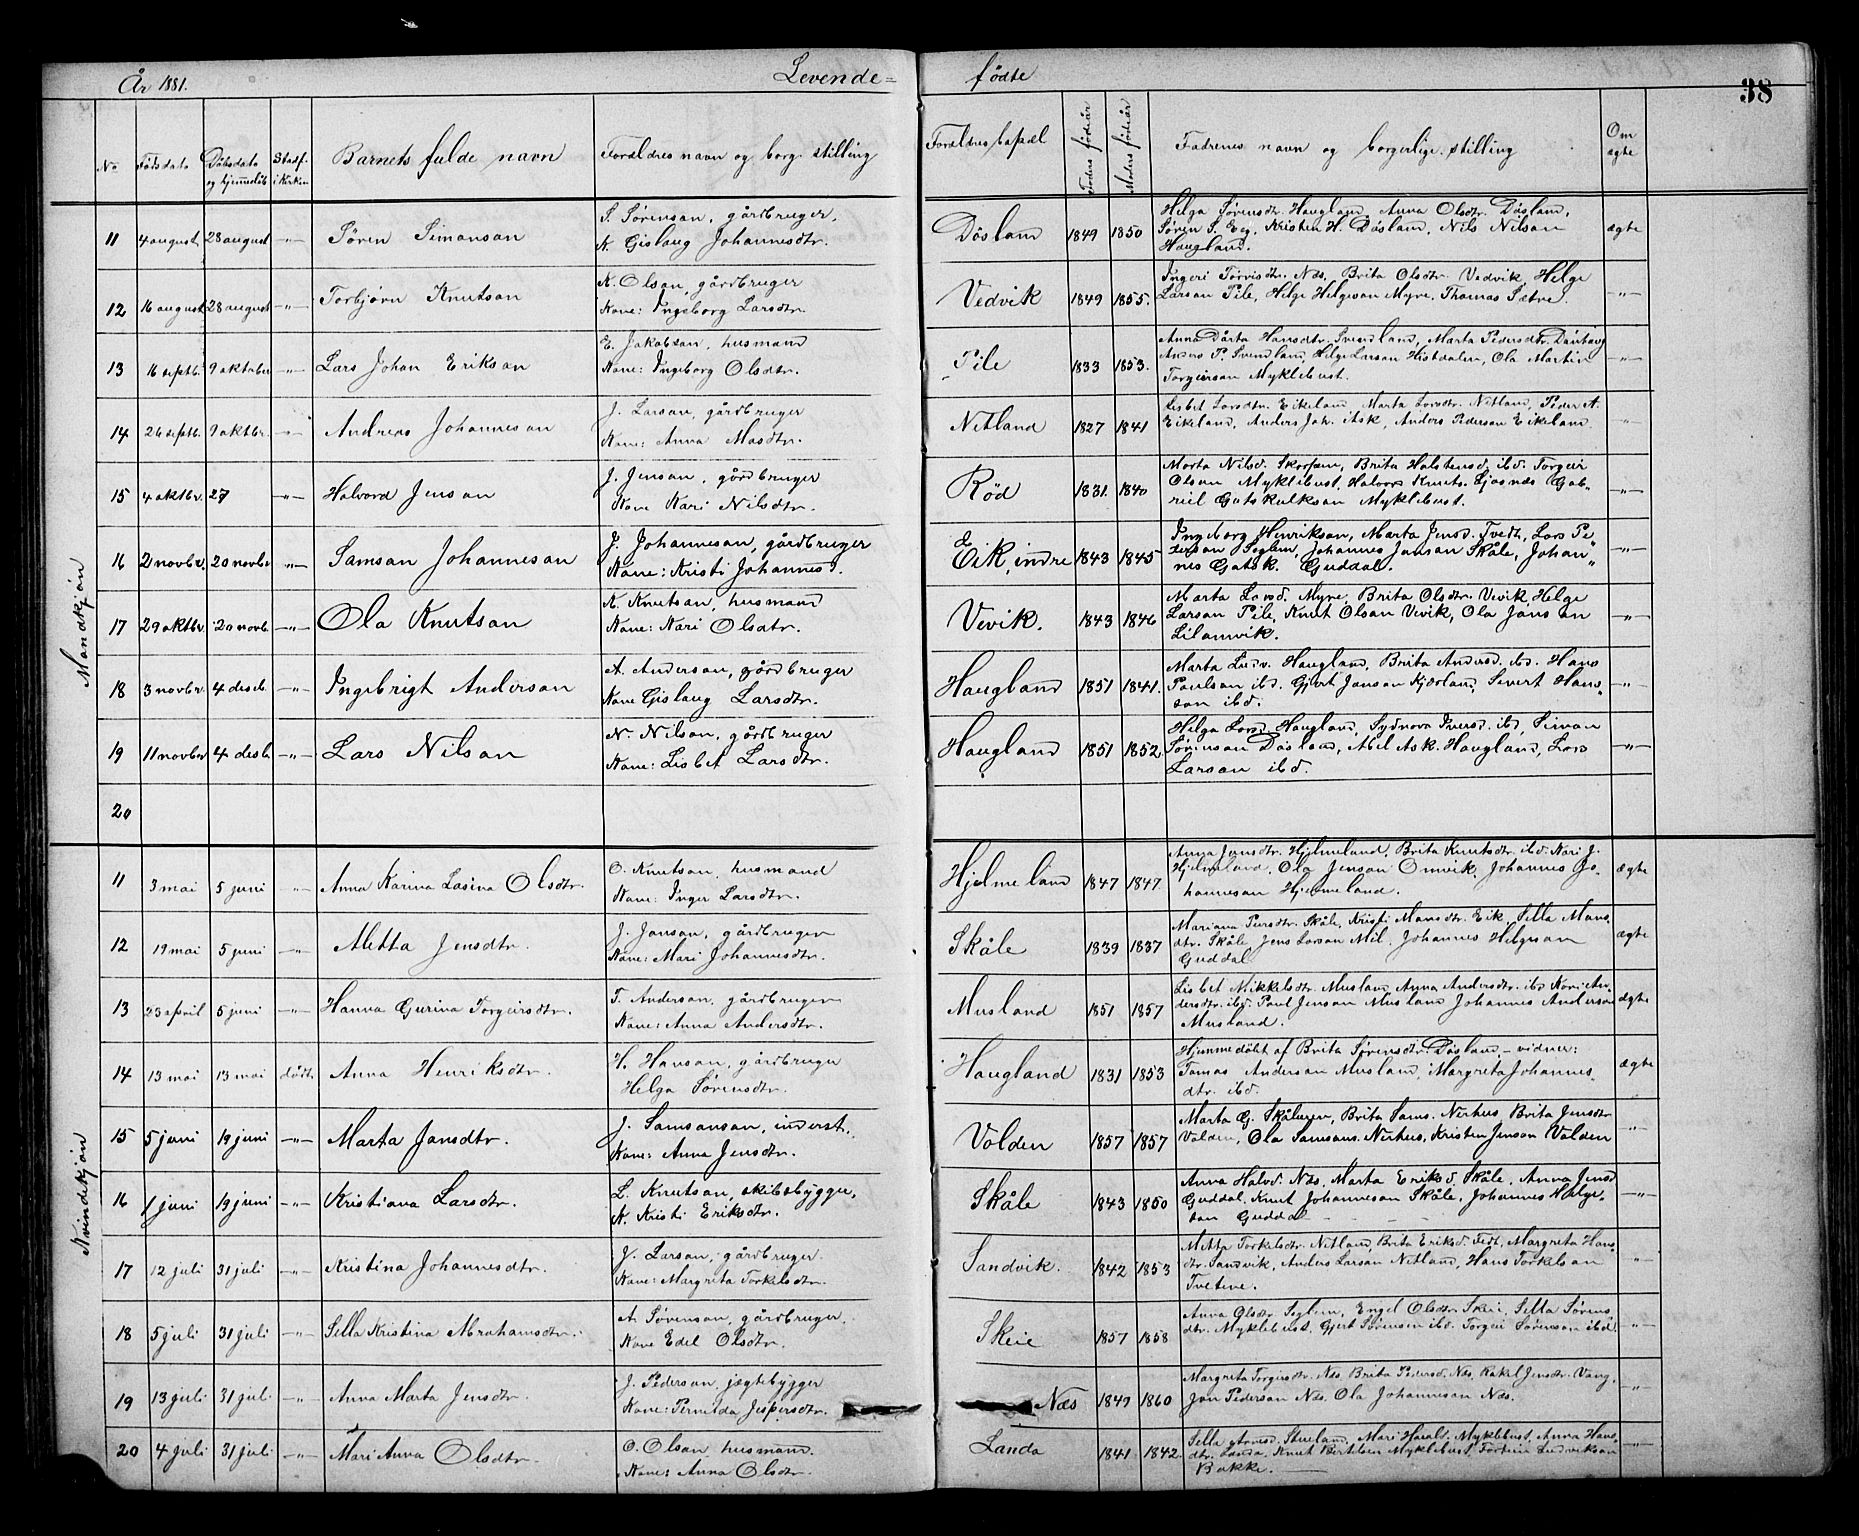 År 1881. Levende= fødte 38
No Fødsdato Døbsdato og hjemmedåb Stadf. i Kirken Barnets fulde navn Forældres navn og borg. stilling Forældres bopæl Faders fødeår Moders fødeår Fadrenes navn og borgerlige stilling Om ægte
Mandkjøn
11 4 august 28 august -"- Søren Simonson
S. Sørenson, gårdbruger,
K. Gislaug Johannesdtr.
Dösland 1849 1850
Helga Sørensdtr. Haugland, Anna Olsdtr. Døsland,
Søren S. Eeg, Kristen H. Døsland, Nils Nilson
Haugland.
ægte
12 16 august 28 august -"- Torbjørn Knutson
K. Olson, gårdbruger
Kone: Ingeborg Larsdtr.
Vedvik 1849 1855.
Ingeri Torvisdtr. Næs, Brita Olsdtr. Vedvik, Helge
Larson Pile, Helge Helgeson Myre, Thomas Sætre.
-"-
13 16 septb. 9 oktober -"- Lars Johan Erikson
E. Jakobson, husmand
Kone: Ingeborg Olsdtr.
Pile 1833 1853.
Anna Dårta Hansdtr. Svendland, Marta Pedersdtr.
Anders P. Svendland, Helge Larson Histdalen, Ola Martin
Torgeirson Myklebust.
-"-
14 26 septb. 9 oktbr. -"- Andreas Johanneson
J. Larson, gårdbruger
Kone: Anna Masdtr.
Nitland 1827 1841
Lisbet Larsdtr. Eikeland, Marta Larsdtr. Nitland, Peder A.
Eikeland, Anders Joh. Ask, Anders Pederson Eikeland.
-"-
15 4 oktbr. 27 -"- Halvord Jenson
J. Jenson, gårdbruger
Kone Kari Nilsdtr.
Rød 1831. 1840
Marta Nilsd. Skorpen, Brita Halstensd. ibd. Torgeir
Olson Myklebust, Halvor Knuts. Ljosnæs Gab-
riel Gotskalkson Myklebust.
-"-
16 2 novbr. 20 novbr -"- Samson Johanneson
J. Johanneson, gårdbruger
Kone: Kristi Johannesd.
Eik, indre 1843 1845
Ingeborg Henrikson, Marta Jensd. Tvedt, Lars Pe-
terson Seglem, Johannes Janson Skåle, Johan-
nes Gotsk. Guddal.
-"-
17 29 oktbr. 20 novb. -"- Ola Knutson
K. Knutson, husmand
Kone: Kari Olsdtr.
Vevik. 1843 1846
Marta Larsd. Myre, Brita Olsdtr. Vevik, Helge
Larson Pile, Knut Olson Vevik, Ola Janson
Lilamvik.
-"-
18 3 novbr. 4 deseb. -"- Ingebrigt Anderson
A. Anderson, gårdbruger
Kone Gislaug Larsdtr.
Haugland 1851 1841.
Marta Ludv. Haugland, Brita Andersd. ibd. Hans
Paulson ibd. Gjert Janson Kjærland, Sivert Hans-
son ibd.
-"-
19 11 novbr 4 desb. -"- Lars Nilson
N. Nilson, gårdbruger
Kone: Lisbet Larsdtr.
Haugland 1851 1852
Helga Larsd. Haugland, Sydnova Iversd. ibd, Simon
Sørenson Døsland, Abel Ask. Haugland, Lars
Larson ibd.
-"-
20
Kvindekjøn
11 3 mai 5 juni -"- Anna Karina Lasina Olsdtr.
O. Knutson, husmand
Kone: Inger Larsdtr.
Hjelmeland 1847 1847
Anna Jensdtr. Hjelmeland, Brita Knutsdtr. ibd. Kari J.
Hjelmeland, Ola Jenson Omvik, Johannes Jo-
hanneson Hjelmeland.
ægte
12 19 mai 5 juni -"- Metta Jensdtr.
J. Janson, gårdbruger
Kone: Mari Johannesdtr.
Skåle 1839 1837
Mariana Persdtr. Skåle, Kristi Monsdtr. Eik, Sella Mons-
dtr. Skåle Jens Larson Mel, Johannes Helgeson
Guddal
ægte
13 23 april 5 juni -"- Hanna Gurina Torgeirsdtr.
T. Anderson, gårdbruger
Kone: Anna Andersdtr.
Musland 1851 1857
Lisbet Mikkelsdtr. Musland, Anna Andersdtr. ibd Kari An-
dersdtr. ibd. Paul Jenson Musland Johannes Anderson
Musland.
ægte
14 13 mai 13 mai dødt Anna Henriksdtr.
H. Hanson, gårdbruger
Helga Sørensdtr.
Haugland 1831 1853
Hjemmedøbt af Brita Sørensdtr. Døsland, - vidner:
Tomas Anderson Musland, Margreta Johannes-
dtr. ibd.
ægte
15 5 juni 19 juni -"- Marta Jansdtr.
J. Samsonson, inderst.
Kone: Anna Jensdtr.
Volden 1857 1857
Marta G. Skåluren, Brita Sams. Nerhus, Brita Jensdtr
Volden, Ola Samsons. Nerhus, Kristen Jenson Volden
-"-
16 1 juni 19 juni -"- Kristiana Larsdtr.
L. Knutson, skibsbygger,
K. Kristi Eriksdtr.
Skåle 1843 1850
Anna Halvd. Næs, Marta Eriksd. Skåle, Anna Jensd
Guddal, Knut Johanneson Skåle, Johannes Helge-
son Guddal
-"-
17 12 juli 31 juli -"- Kristina Johannesdtr.
J. Larson, gårdbruger.
Kone: Margrita Torkelsdtr.
Sandvik. 1842 1853
Metta Torkelsdtr. Nitland, Brita Eriksd. Tedt, Margreta Hans-
dtr. Sandvik, Anders Larson Nitland, Hans Torkelson
Tvetene.
-"-
18 5 juli 31 juli -"- Sella Kristina Abrahamsdtr.
A. Sørenson, gårdbruger,
Kone Edel Olsdtr.
Skeie 1857 1858
Anna Olsdtr. Seglem, Engel Olsdtr. Skeie, Sella Sørens-
dtr. Myklebust, Gjert Sørenson ibd. Torgeir Sørenson ibd.
-"-
19 13 juli 31 juli -"- Anna Marta Jensdtr.
J. Pederson, jægtebygger
Kone: Pernilda Jespersdtr.
Næs 1849 1860
Margreta Torgeirsdtr. Næs, Brita Pedersd. Næs Rakel Jensdtr. Vang,
Jon Pederson Næs, Ola Johanneson Næs.
-"-
20 4 juli 31 juli -"- Mari Anna Olsdtr.
O. Olson husmand.
Kone: Anna Olsdtr.
Landa 1841 1842.
Sella Arnesd. Stueland, Mari Harald. Myklebust, Anna Hans-
dtr. Landa, Knut Bertelsen Myklebust, Torbein Ludvikson
Bakke.
-"-